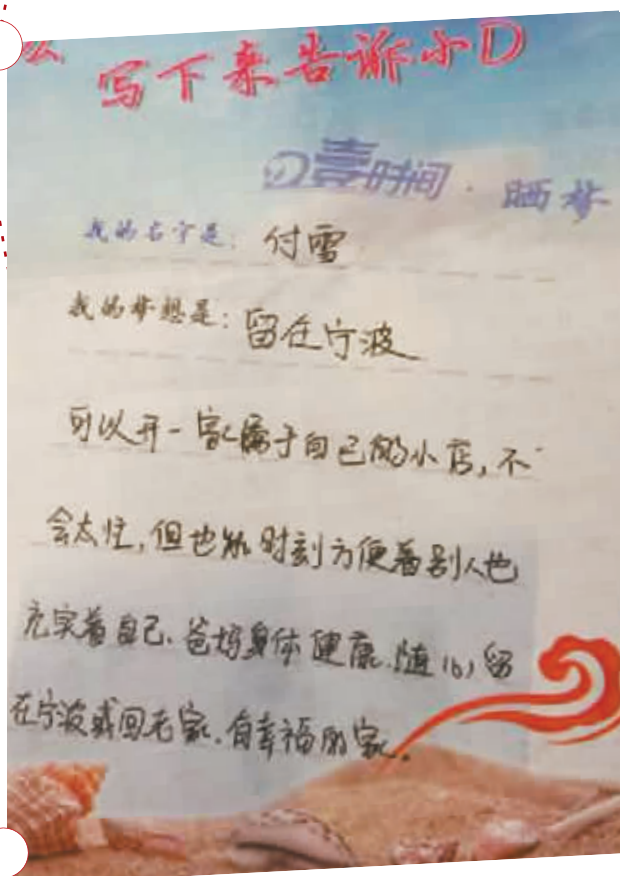 么
写下来告诉小D
壹时间·晒梦
我的名字是：付雪
我的梦想是：留在宁波
可以开一家属于自己的小店，不
会太忙，但也能时刻方便着别人也
充实着自己、爸妈身体健康.随心留
在宁波或回老家.有幸福的家.